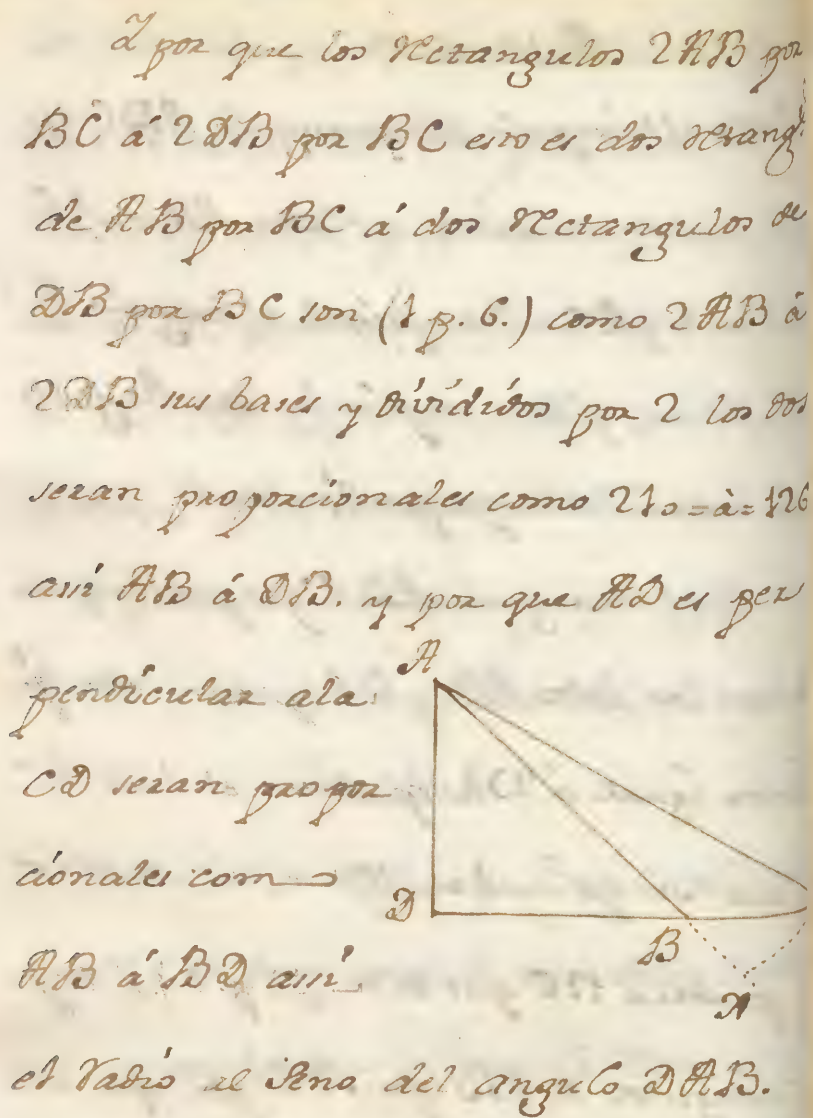 Y por que los rectangulos 2AB por
BC á 2DB por BC esto es dos retang.
de AB por BC á dos rectangulos de
DB por BC son (1 p. 6.) como 2AB à
2DB sus bases y dividido por 2 los dos
seran proporcionales como 210=à=126
asi AB á DB. y por que AD es per
A
pendicular ala
CD seran propor
cionales como
D
AB á BD asi
B
el radio al seno del angulo DAB.